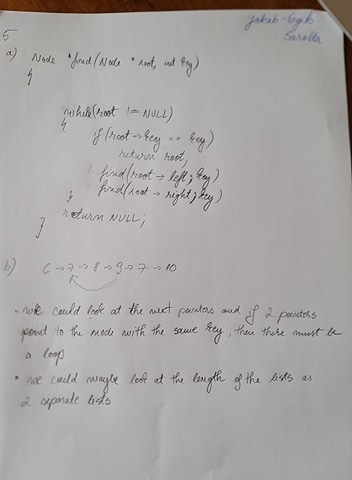 Jakab-Gyik
Sarolta
5
a) Node *find(Node * root, int key)
{
while(root != NULL)
{
if(root->key == key)
return root;
find(root->left; key)
find(root->right; key)
}
return NULL;
}
b) 6->7->8->9->7->10
• we could look at the next pointers and if 2 pointers
point to the node with the same key, then there must be
a loop
• we could maybe look at the length of the lists as
2 separate lists